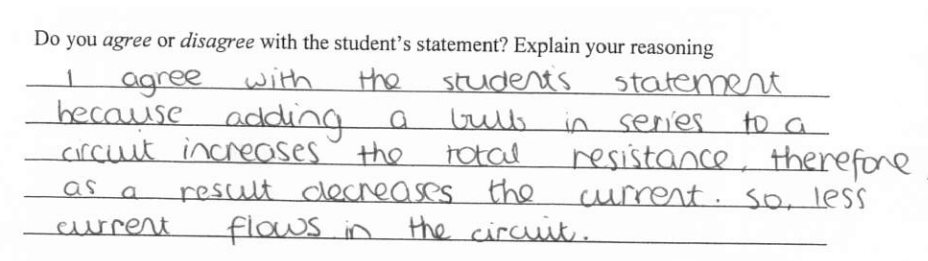 Do you agree or disagree with the student's statement? Explain your reasoning
I agree with the student's statement
because adding a bulb in series to a
circuit increases the total resistance, therefore
as a result decreases the current. so, less
current flows in the circuit.